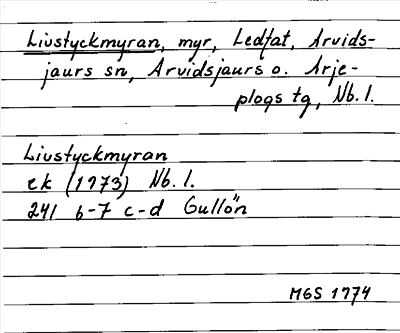 Livstyckmyran, myr, Ledfat, Arvids-
jaurs sn, Arvidsjaurs o. Arje-
plogs tg, Nb. l.
Livstyckmyran
ek (1973) Nb. l.
241 6-7 c-d Gullön
MGS 1974